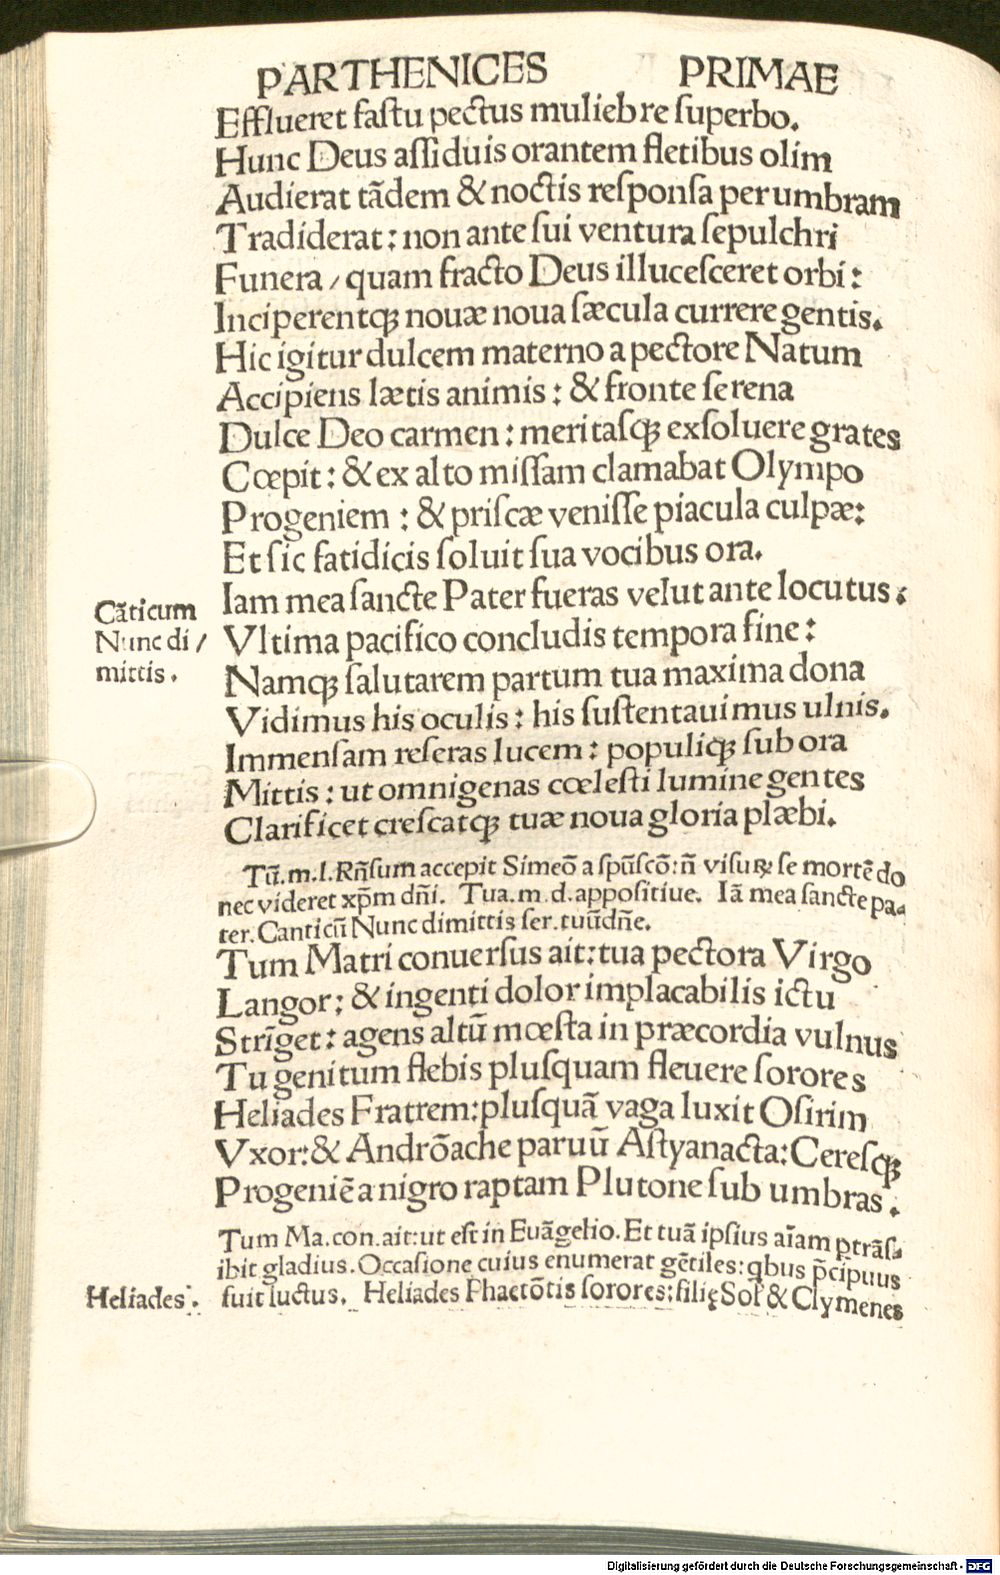 PARTHENICES PRIMAE
Efflueret faſtu pectus muliebre ſuperbo.
Hunc Deus aſſiduis orantem fletibus olim
Audierat tãdem & noctis reſponſa per umbram
Tradiderat: non ante ſui ventura ſepulchri
Funera / quam fracto Deus illuceſceret orbi:
Inciperentqꝫ nouæ noua ſæcula currere gentis.
Hic igitur dulcem materno a pectore Natum
Accipiens lætis animis: & fronte ſerena
Dulce Deo carmen: meritaſqꝫ exſoluere grates
Cœpit: & ex alto miſſam clamabat Olympo
Progeniem: & priſcæ veniſſe piacula culpæ:
Et ſic fatidicis ſoluit ſua vocibus ora.
Iam mea ſancte Pater fueras velut ante locutus:
Cãticum
Nunc di/
mittis.
Vltima pacifico concludis tempora fine:
Namqꝫ ſalutarem partum tua maxima dona
Vidimus his oculis: his ſuſtentauimus ulnis.
Immenſam reſeras lucem: populiqꝫ ſub ora
Mittis: ut omnigenas cœleſti lumine gentes
Clarificet creſcatqꝫ tuæ noua gloria plæbi.
Tũ.m.l. Rñſum accepit Simeõ a ſpũſcõ: ñ viſuꝝ ſe mortẽ do
nec videret xp̃m dñi. Tua.m.d.appoſitiue. Iã mea ſancte pa-
ter. Canticũ Nunc dimittis ſer. tuũ dñe.
Tum Matri conuerſus ait: tua pectora Virgo
Langor: & ingenti dolor implacabilis ictu
Strĩget: agens altũ mœſta in præcordia vulnus
Tu genitum flebis pluſquam fleuere ſorores
Heliades Fratrem: pluſquã vaga luxit Oſirim
Vxor: & Andrõache paruũ Aſtyanacta: Cereſqꝫ
Progeniẽ a nigro raptam Plutone ſub umbras.
Tum Ma.con.ait: ut eſt in Euãgelio. Et tuã ipſius aĩam ptrãſ-
ibit gladius. Occaſione cuius enumerat gẽtiles: qbus p̃cipuus
Heliades.
fuit luctus. Heliades Phaetõtis ſorores: filię Sol̃ & Clymenes
Digitalisierung gefördert durch die Deutsche Forschungsgemeinschaft - DFG